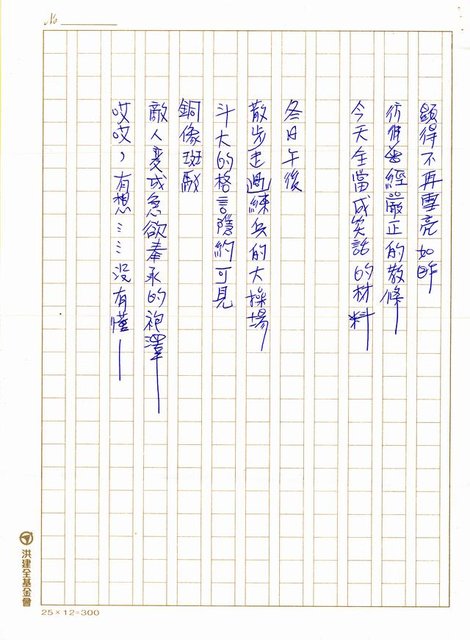 No
顯得不再雪亮如昨
彷彿曾經嚴正的教條
今天全當成笑話的材料
冬日午後
散步走過練兵的大操場
斗大的格言隱約可見
銅像斑駁
敵人變成急欲奉承的袍澤
哎哎，有想……沒有懂
洪建全基金會
25×12=300